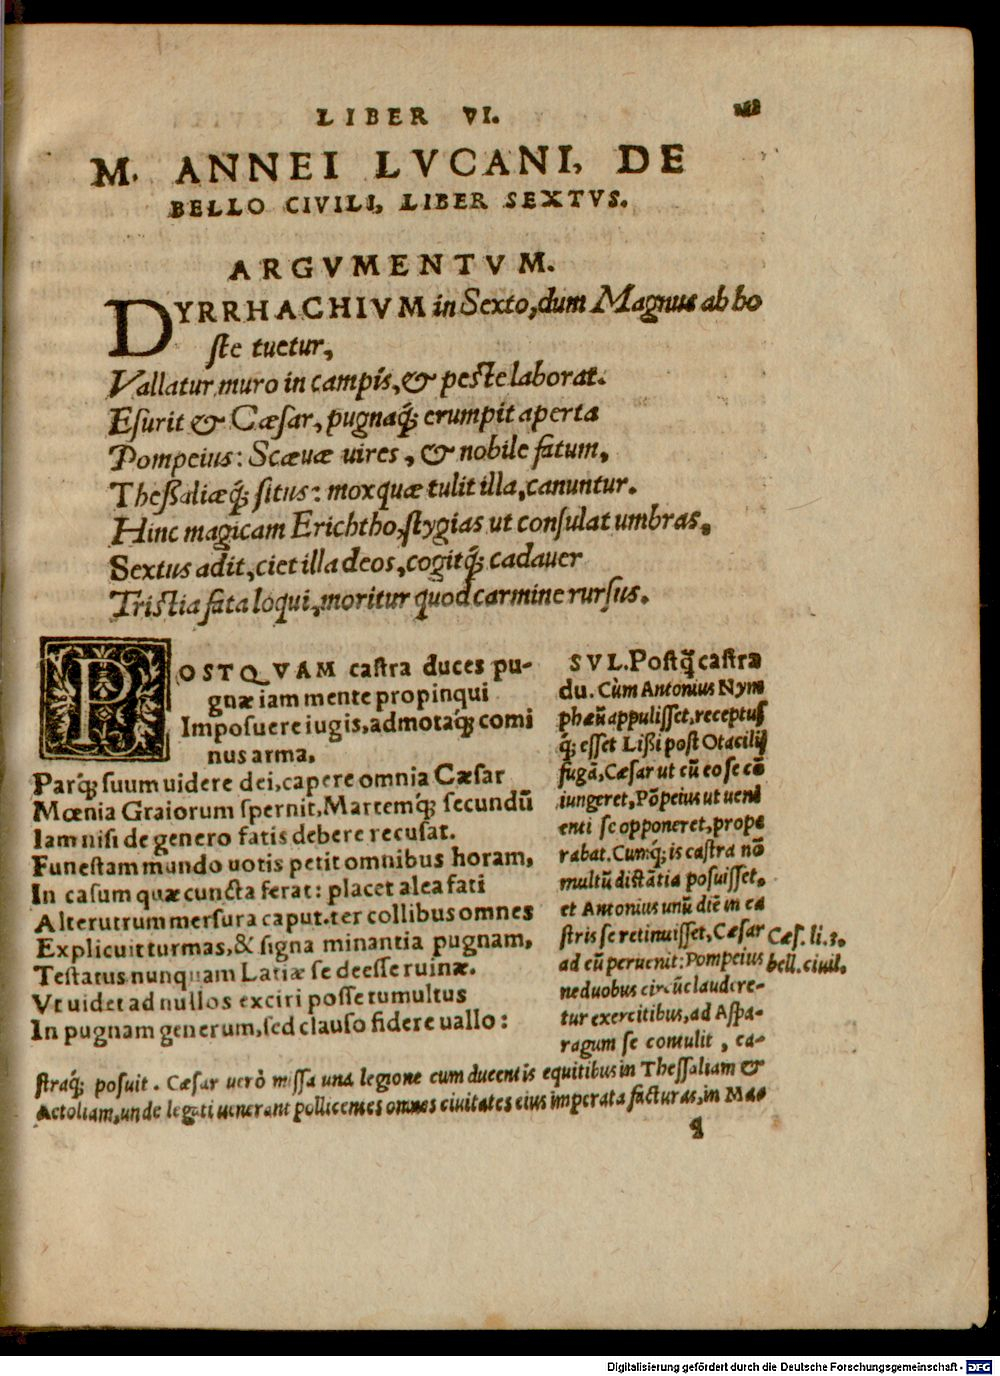 LIBER VI.
M. ANNEI LVCANI, DE
BELLO CIVILI, LIBER SEXTVS.
ARGVMENTVM.
DYRRHACHIVM in Sexto, dum Magnus ab ho
ste tuetur,
Vallatur muro in campis, & peste laborat.
Esurit & Cæsar, pugnaq́; erumpit aperta
Pompeius: Scæuæ uires, & nobile fatum,
Thessaliæq́; situs: mox quæ tulit illa, canuntur.
Hinc magicam Erichtho, stygias ut consulat umbras,
Sextus adit, ciet illa deos, cogitq́; cadauer
Tristia fata loqui, moritur quod carmine rursus.
POSTQVAM castra duces pu-
gnæ iam mente propinqui
Imposuere iugis, admotaq́; comi
nus arma,
Parq́; suum uidere dei, capere omnia Cæsar
Mœnia Graiorum spernit, Martemq́; secundũ
Iam nisi de genero fatis debere recusat.
Funestam mundo uotis petit omnibus horam,
In casum quæ cuncta ferat: placet alea fati
Alterutrum mersura caput. ter collibus omnes
Explicuit turmas, & signa minantia pugnam,
Testatus nunquam Latiæ se deesse ruinæ.
Vt uidet ad nullos exciri posse tumultus
In pugnam generum, sed clauso fidere uallo:
SVL. Postq̃ castra
du. Cùm Antonius Nym
phæũ appulisset, receptus
q́; esset Lißi post Otacilij
fugã, Cæsar ut cũ eo se cõ
iungeret, Põpeius ut ueni
enti se opponeret, prope
rabat. Cumq́; is castra nõ
multũ distãtia posuisset,
et Antonius unũ diẽ in ca
stris se retinuisset, Cæsar
ad eũ peruenit: Pompeius
ne duobus circũcludere-
tur exercitibus, ad Aspa-
ragum se contulit, ca-
Cæs. li. 3.
bell. ciuil.
straq́; posuit. Cæsar uerò missa una legione cum ducentis equitibus in Thessaliam &
Aetoliam, unde legati uenerant pollicentes omnes ciuitates eius imperata facturas, in Ma-
q
Digitalisierung gefördert durch die Deutsche Forschungsgemeinschaft - DFG